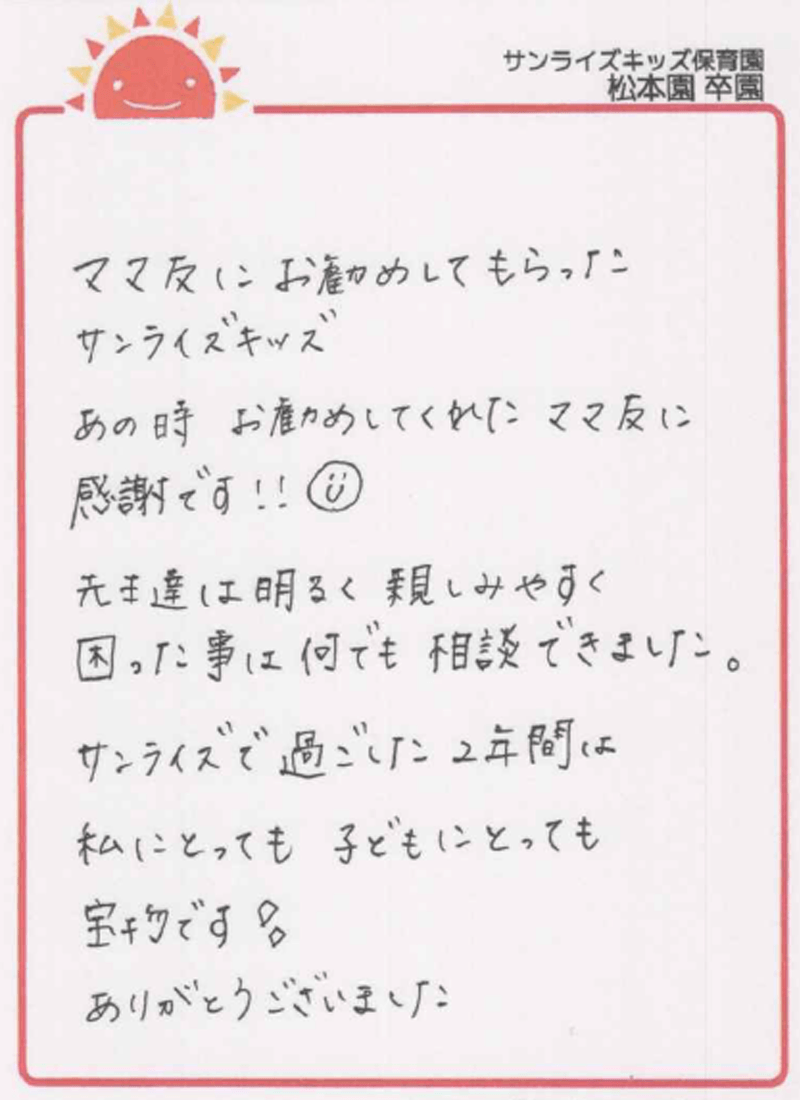 サンライズキッズ保育園
松本園 卒園
ママ友に お勧めしてもらった
サンライズキッズ
あの時 お勧めしてくれた ママ友に
感謝です!!
先生達は明るく 親しみやすく
困った事は何でも 相談できました。
サンライズで過ごした 2年間は
私にとっても 子どもにとっても
宝物です
ありがとうございました